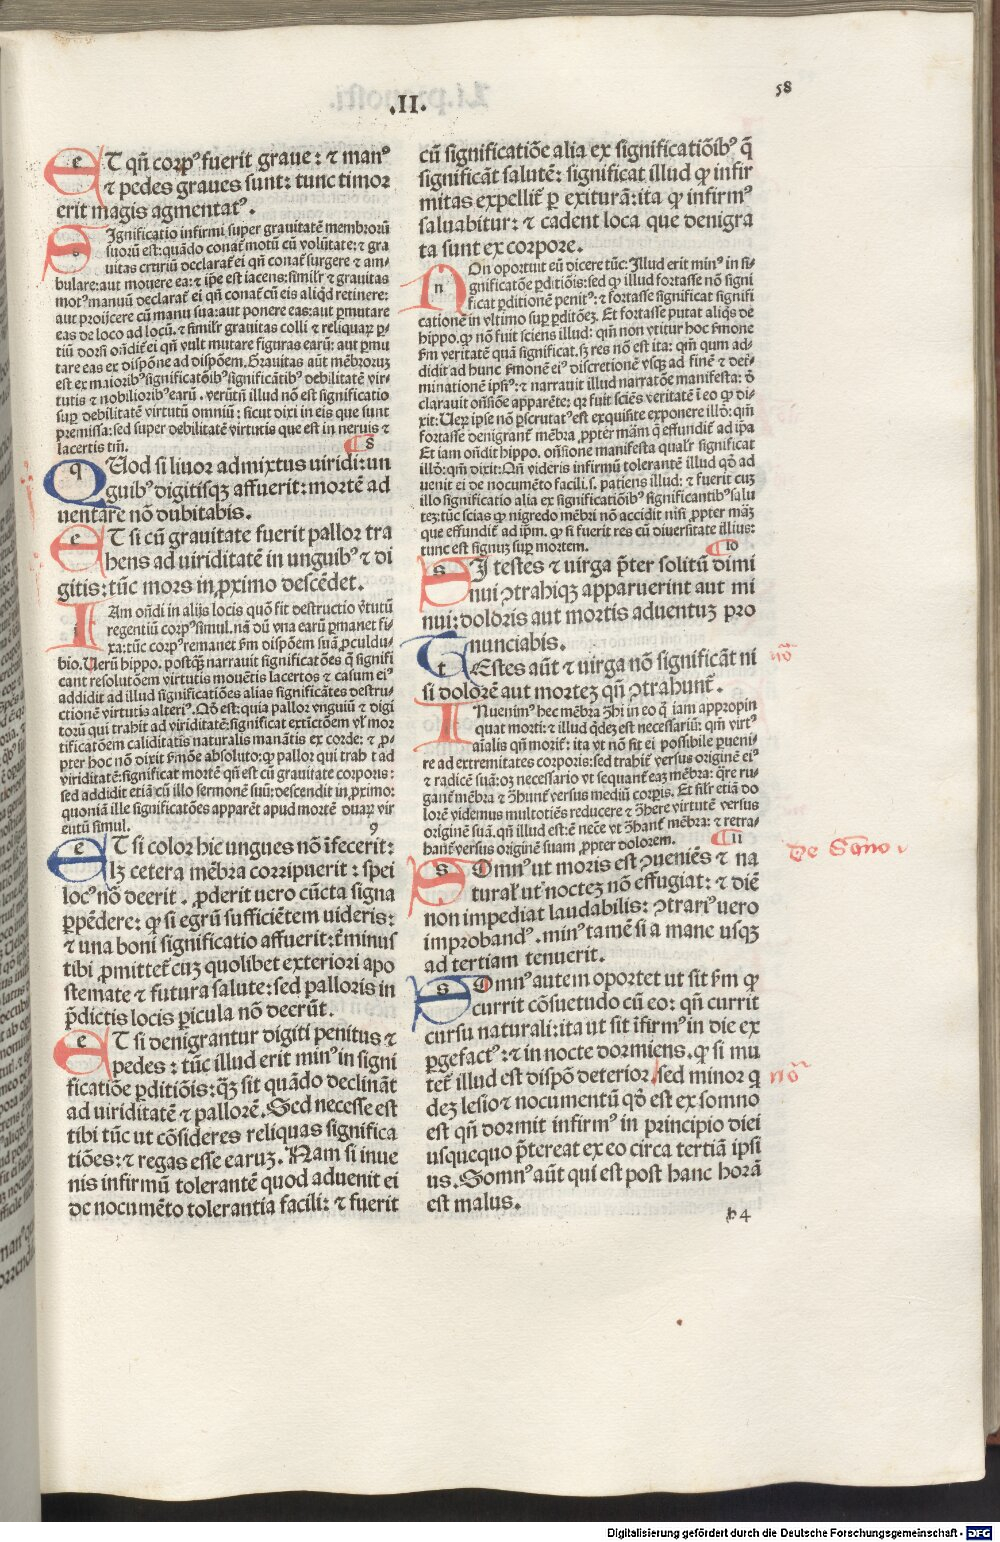 .II.
58
ET qñ corpꝰ fuerit graue: ⁊ manꝰ
⁊ pedes graues sunt: tunc timor
erit magis agmentatꝰ.
SIgnificatio infirmi super grauitatē membrorū
suorū est: quādo conat̄ motū cū volūtate: ⁊ gra
uitas cruriū declarat̄ ei qñ conat̄ surgere ⁊ am-
bulare: aut mouere ea: ⁊ ip̄e est iacens: simil̄r ⁊ grauitas
motꝰ manuū declarat̄ ei qñ conat̄ cū eis aliqd̄ retinere:
aut proijcere cū manu sua: aut ponere eas: aut ꝑmutare
eas de loco ad locū. ⁊ simil̄r grauitas colli ⁊ reliquaꝝ ꝑ-
tiū dorsi oñdit̄ ei qñ vult mutare figuras earū: aut ꝑmu
tare eas ex dispōne ad dispōem. Grauitas aūt mēbroruꝫ
est ex maioribꝰ significatōibꝰ significātibꝰ debilitatē vir-
tutis ⁊ nobilioribꝰ earū. verūtn̄ illud nō est significatio
suꝑ debilitatē virtutū omniū: sicut dixi in eis que sunt
p̄missa: sed super debilitatē virtutis que est in neruis ⁊
lacertis tm̄.
8
QUod si liuor admixtus uiridi: un
guibꝰ digitisqꝫ affuerit: mortē ad
uentare nō dubitabis.
ET si cū grauitate fuerit pallor tra
hens ad uiriditatē in unguibꝰ ⁊ di
gitis: tūc mors in ꝓximo descēdet.
IAm oñdi in alijs locis quō sit destructio v̄tutū
regentiū corpꝰ simul. nā dū vna earū ꝑmanet fi-
xa: tūc corpꝰ remanet s̄m dispōem suā ꝓculdu-
bio. Uerū hippo. postqꝫ narrauit significatōes q̄ signifi
cant resolutōem virtutis mouētis lacertos ⁊ casum eiꝰ
addidit ad illud significatiōes alias significātes destru-
ctionē virtutis alteriꝰ. Qđ est: quia pallor vnguiū ⁊ digi
torū qui trahit ad viriditatē: significat extictōem vl̄ mor
tificatōem caliditatis naturalis manātis ex corde: ⁊ ꝓ-
pter hoc nō dixit s̄mōe absoluto: ꝙ pallor qui trah t ad
viriditatē: significat mortē qñ est cū grauitate corporis:
sed addidit etiā cū illo sermonē suū: descendit in ꝓximo:
quoniā ille significatōes apparēt apud mortē duaꝝ vir
entū simul.
9
ET si color hic ungues nō īfecerit:
sꝫ cetera mēbra corripuerit: spei
locꝰ nō deerit. ꝓderit uero cūcta signa
ꝑpēdere: ꝙ si egrū sufficiētem uideris:
⁊ una boni significatio affuerit: t̄ minus
tibi ꝓmittet̄ cuꝫ quolibet exteriori apo
stemate ⁊ futura salute: sed palloris in
p̄dictis locis ꝑicula nō decrūt.
ET si denigrantur digiti penitus ⁊
pedes: tūc illud erit minꝰ in signi
ficatiōe ꝑditiōis: qꝫ sit quādo declināt
ad uiriditatē ⁊ pallorē. Sed necesse est
tibi tūc ut cōsideres reliquas significa
tiōes: ⁊ regas esse earuꝫ. Nam si inue
nis infirmū tolerantē quod aduenit ei
de nocumēto tolerantia facili: ⁊ fuerit
cū significatiōe alia ex significatiōibꝰ q̄
significāt salutē: significat illud ꝙ infir
mitas expellit̄ ꝑ exiturā: ita ꝙ infirmꝰ
saluabitur: ⁊ cadent loca que denigra
ta sunt ex corpore.
NOn oportuit eū dicere tūc: Illud erit minꝰ in si-
gnificatōe ꝑditiōis: sed ꝙ illud fortasse nō signi
ficat ꝑditionē penitꝰ: ⁊ fortasse significat signifi
cationē in vltimo suꝑ ꝑditōeꝫ. Et fortasse putat aliqs̄ de
hippo. ꝙ nō fuit sciens illud: qm̄ non vtitur hoc s̄mone
s̄m veritatē quā significat. sꝫ res nō est ita: qm̄ qum ad-
didit ad hunc s̄monē eiꝰ discretionē vsqꝫ ad finē ⁊ det̄-
minationē ipsiꝰ: ⁊ narrauit illud narratōe manifesta: d̄
clarauit oñsiōe apparēte: qꝛ fuit sciēs veritatē ī eo ꝙ di-
xit: Ueꝝ ipse nō ꝑscrutatꝰ est exquisite exponere illđ: qm̄
fortasse denigrant̄ mēbra ꝓpter mām q̄ effundit̄ ad ip̄a
Et iam ondit hippo. oñsione manifesta qualr̄ significat
illđ: qm̄ dixit: Qñ videris infirmū tolerantē illud qđ ad
uenit ei de nocumēto facili. s. patiens illud: ⁊ fuerit cuꝫ
illo significatio alia ex significatiōibꝰ significantibꝰ salu
teꝫ: tūc scias ꝙ nigredo mēbri nō accidit nisi ꝓpter māꝫ
que effundit̄ ad ip̄m. ꝙ si fuerit res cū diuersitate illius:
tunc est signuꝫ suꝑ mortem.
10
SI testes ⁊ uirga p̄ter solitū dimi
nui ꝯtrahiqꝫ apparuerint aut mi
nui: doloris aut mortis aduentuꝫ pro
nunciabis.
TEstes aūt ⁊ uirga nō significāt ni
si dolorē aut morteꝫ qñ ꝯtrahunt̄.
INuenimꝰ hec mēbra ꝯ̄hi in eo q̄ iam appropin
quat morti: ⁊ illud qdeꝫ est necessariū: qm̄ virtꝰ
aīalis qñ morit̄: ita vt nō sit ei possibile ꝑueni-
re ad extremitates corporis: sed trahit̄ versus originē eiꝰ
⁊ radicē suā: oꝫ necessario vt sequant̄ eaꝫ mēbra: qr̄e ru-
gant̄ mēbra ⁊ ꝯ̄hunt̄ versus mediū corpis. Et silr̄ etiā do
lorē videmus multotiēs reducere ⁊ ꝯ̄here virtutē versus
originē suā. qñ illud est: nec̄e vt ꝯ̄hant̄ mēbra: ⁊ retra-
hant̄ versus originē suam ꝓpter dolorem.
11
SOmnꝰ ut moris est ꝯueniēs ⁊ na
tural̄ ut noctez nō effugiat: ⁊ diē
non impediat laudabilis: ꝯtrariꝰ uero
improbandꝰ. minꝰ tamē si a mane usqꝫ
ad tertiam tenuerit.
SOmnꝰ autem oportet ut sit s̄m ꝙ
currit cōsuetudo cū eo: qñ currit
cursu naturali: ita ut sit īfirmꝰ in die ex
ꝑgefactꝰ: ⁊ in nocte dormiens. ꝙ si mu
tet̄ illud est dispō deterior. sed minor q
deꝫ lesio ⁊ nocumentū qđ est ex somno
est qñ dormit infirmꝰ in principio diei
usquequo p̄tereat ex eo circa tertiā ipsi
us. Somnꝰ aūt qui est post hanc horā
est malus.
h4
nō
De Sōno.
nō
Digitalisierung gefördert durch die Deutsche Forschungsgemeinschaft - DFG